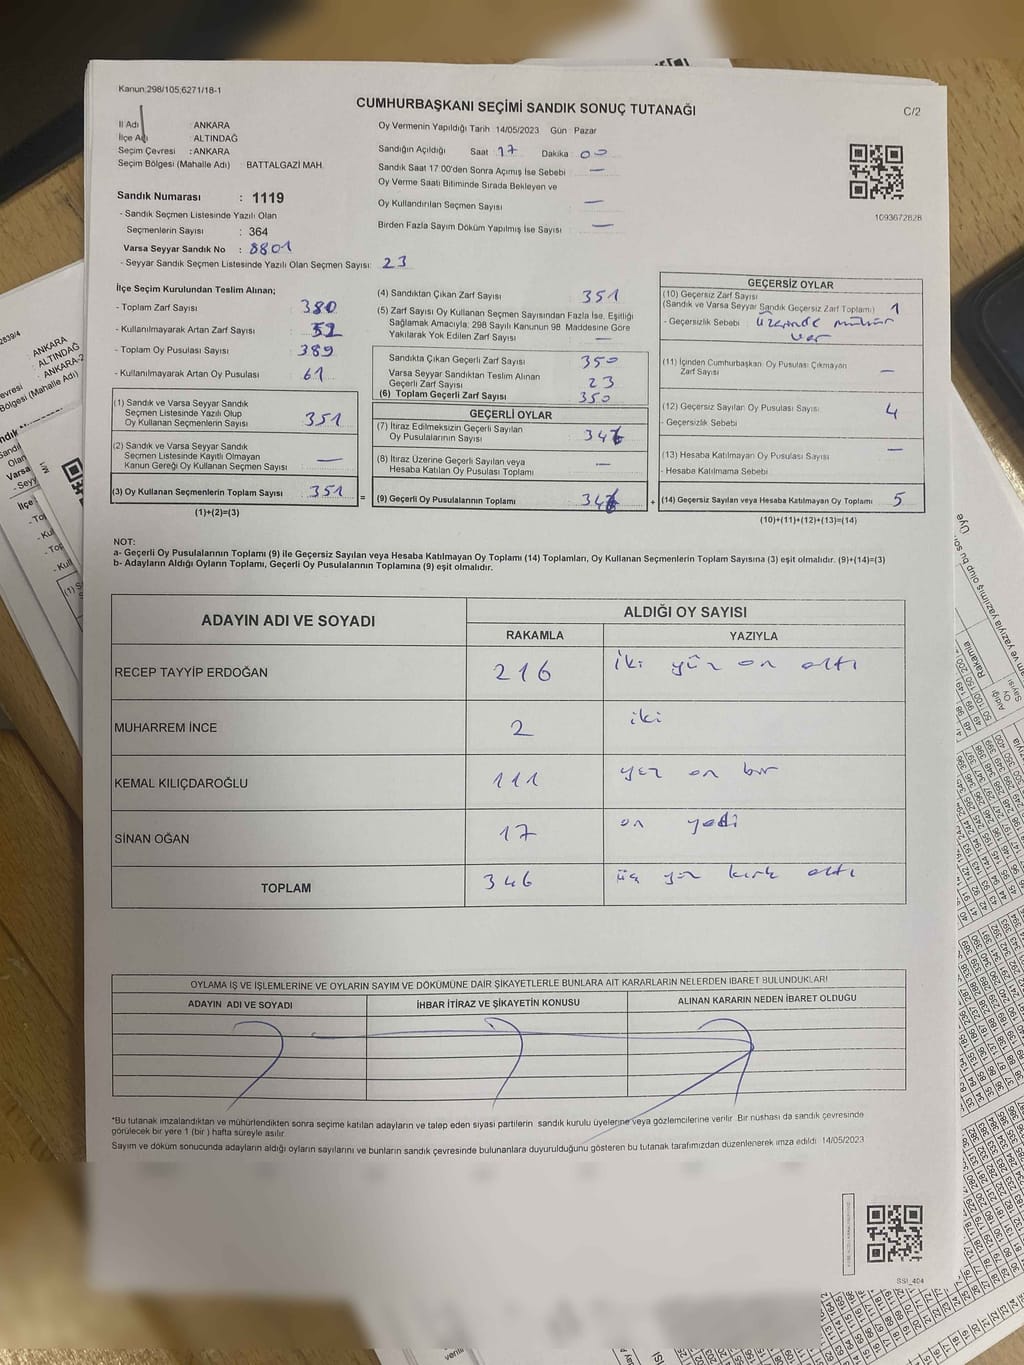 Kanun:298/105,6271/18-1
CUMHURBAŞKANI SEÇİMİ SANDIK SONUÇ TUTANAĞI
C/2
İl Adı : ANKARA
İlçe Adı : ALTINDAĞ
Seçim Çevresi : ANKARA
Seçim Bölgesi (Mahalle Adı) BATTALGAZİ MAH.
Sandık Numarası : 1119
- Sandık Seçmen Listesinde Yazılı Olan
Seçmenlerin Sayısı : 364
Varsa Seyyar Sandık No : 8801
- Seyyar Sandık Seçmen Listesinde Yazılı Olan Seçmen Sayısı: 23
Oy Vermenin Yapıldığı Tarih 14/05/2023 Gün : Pazar
Sandığın Açıldığı Saat 17 Dakika 00
Sandık Saat 17:00'den Sonra Açımış İse Sebebi : —
Oy Verme Saati Bitiminde Sırada Bekleyen ve
Oy Kullandırılan Seçmen Sayısı : —
Birden Fazla Sayım Döküm Yapılmış İse Sayısı : —
1093672828
İlçe Seçim Kurulundan Teslim Alınan;
- Toplam Zarf Sayısı : 380
- Kullanılmayarak Artan Zarf Sayısı :
- Toplam Oy Pusulası Sayısı : 389
- Kullanılmayarak Artan Oy Pusulası : 61
(1) Sandık ve Varsa Seyyar Sandık
Seçmen Listesinde Yazılı Olup
Oy Kullanan Seçmenlerin Sayısı 351
(2) Sandık ve Varsa Seyyar Sandık
Seçmen Listesinde Kayıtlı Olmayan
Kanun Gereği Oy Kullanan Seçmen Sayısı —
(3) Oy Kullanan Seçmenlerin Toplam Sayısı 351
(1)+(2)=(3)
=
(4) Sandıktan Çıkan Zarf Sayısı : 351
(5) Zarf Sayısı Oy Kullanan Seçmen Sayısından Fazla İse, Eşitliği
Sağlamak Amacıyla; 298 Sayılı Kanunun 98. Maddesine Göre
Yakılarak Yok Edilen Zarf Sayısı : —
Sandıkta Çıkan Geçerli Zarf Sayısı : 350
Varsa Seyyar Sandıktan Teslim Alınan
Geçerli Zarf Sayısı : 23
(6) Toplam Geçerli Zarf Sayısı : 350
GEÇERLİ OYLAR
(7) İtiraz Edilmeksizin Geçerli Sayılan
Oy Pusulalarının Sayısı : 346
(8) İtiraz Üzerine Geçerli Sayılan veya
Hesaba Katılan Oy Pusulası Toplamı : —
(9) Geçerli Oy Pusulalarının Toplamı : 346
+
GEÇERSİZ OYLAR
(10) Geçersiz Zarf Sayısı
(Sandık ve Varsa Seyyar Sandık Geçersiz Zarf Toplamı) : 1
- Geçersizlik Sebebi : üzerinde mühür
var
(11) İçinden Cumhurbaşkanı Oy Pusulası Çıkmayan
Zarf Sayısı : —
(12) Geçersiz Sayılan Oy Pusulası Sayısı : 4
- Geçersizlik Sebebi :
(13) Hesaba Katılmayan Oy Pusulası Sayısı : —
- Hesaba Katılmama Sebebi :
(14) Geçersiz Sayılan veya Hesaba Katılmayan Oy Toplamı : 5
(10)+(11)+(12)+(13)=(14)
NOT:
a- Geçerli Oy Pusulalarının Toplamı (9) ile Geçersiz Sayılan veya Hesaba Katılmayan Oy Toplamı (14) Toplamları, Oy Kullanan Seçmenlerin Toplam Sayısına (3) eşit olmalıdır. (9)+(14)=(3)
b- Adayların Aldığı Oyların Toplamı, Geçerli Oy Pusulalarının Toplamına (9) eşit olmalıdır.
ADAYIN ADI VE SOYADI
ALDIĞI OY SAYISI
RAKAMLA YAZIYLA
RECEP TAYYİP ERDOĞAN 216 iki yüz on altı
MUHARREM İNCE 2 iki
KEMAL KILIÇDAROĞLU 111 yüz on bir
SİNAN OĞAN 17 on yedi
TOPLAM 346 üç yüz kırk altı
OYLAMA İŞ VE İŞLEMLERİNE VE OYLARIN SAYIM VE DÖKÜMÜNE DAİR ŞİKAYETLERLE BUNLARA AİT KARARLARIN NELERDEN İBARET BULUNDUKLARI
ADAYIN ADI VE SOYADI İHBAR İTİRAZ VE ŞİKAYETİN KONUSU ALINAN KARARIN NEDEN İBARET OLDUĞU
*Bu tutanak imzalandıktan ve mühürlendikten sonra seçime katılan adayların ve talep eden siyasi partilerin sandık kurulu üyelerine veya gözlemcilerine verilir. Bir nüshası da sandık çevresinde
görülecek bir yere 1 (bir) hafta süreyle asılır.
Sayım ve döküm sonucunda adayların aldığı oyların sayılarını ve bunların sandık çevresinde bulunanlara duyurulduğunu gösteren bu tutanak tarafımızdan düzenlenerek imza edildi. 14/05/2023
SSI_404